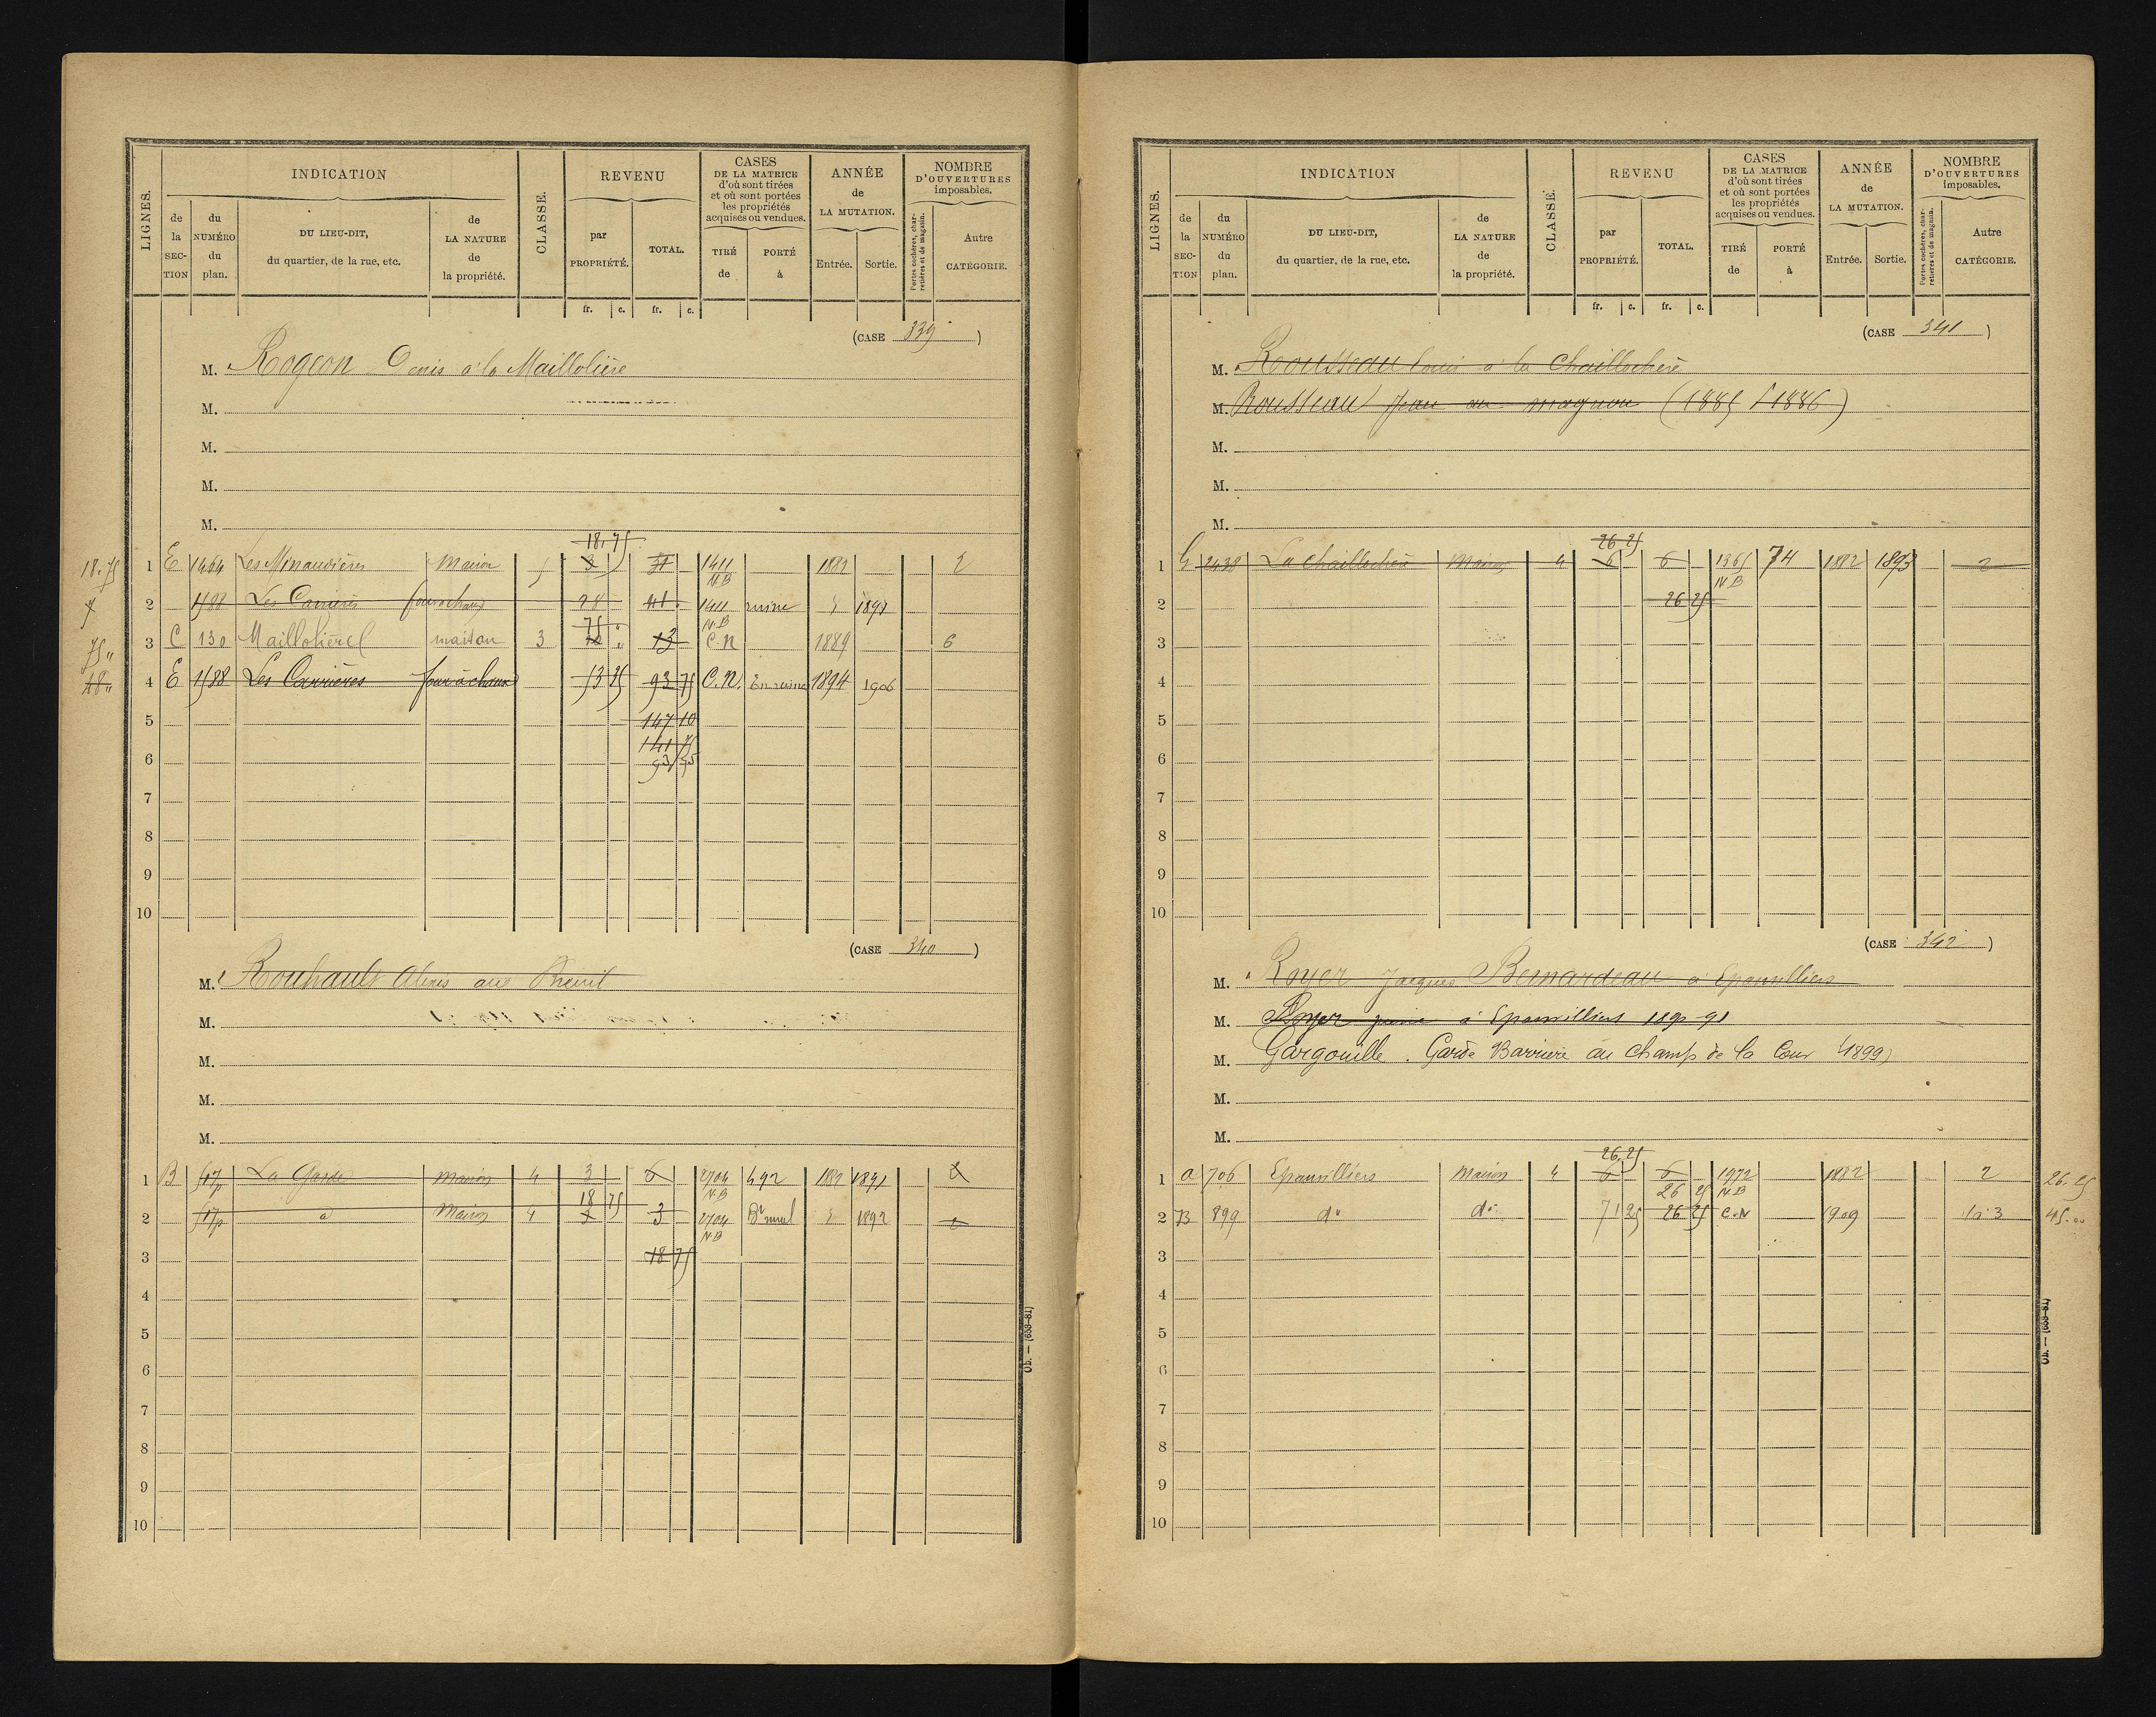 LIGNES.
INDICATION
de la SEC-TION
du NUMÉRO du plan.
DU LIEU-DIT, du quartier, de la rue, etc.
de LA NATURE de la propriété.
CLASSE.
REVENU
par PROPRIÉTÉ.
TOTAL.
CASES DE LA MATRICE d'où sont tirées et où sont portées les propriétés acquises ou vendues.
TIRÉ de
PORTÉ à
ANNÉE de LA MUTATION.
Entrée.
Sortie.
NOMBRE D'OUVERTURES imposables.
Portes cochères, char-retières et de magasin.
Autre CATÉGORIE.
fr. c. fr. c.
(CASE 339)
M. Rogeon Denis à la Maillolière
M.
M.
M.
M.
18,75
18.75 1 E 1464 Les Minaudières Maison 5 3 31 1411 N B 1882 2
2 1588 Les Carrières four à chaux 28 41 1411 N.B ruine 1891
75
75 " 3 C 130 Maillolière maison 3 10 13 C.N 1889 6
48 " 4 E 1588 Les Carrières four à chaux 53 25 93 75 C.N. En ruine 1894 1906
5 147 10
141 75
6 93 75
7
8
9
10
(CASE 340)
M. Rouhault Alexis au Breuil
M.
M.
M.
M.
1 B 517p La Garde maison 4 3 6 2704 N.B 492 1882 1891 2
18 75
2 517p d Maison 4 3 3 2704 N B 1892 2
3 18 75
4
5
6
7
8
9
10
Ob. — (653-81)
LIGNES.
INDICATION
de la SEC-TION
du NUMÉRO du plan.
DU LIEU-DIT, du quartier, de la rue, etc.
de LA NATURE de la propriété.
CLASSE.
REVENU
par PROPRIÉTÉ.
TOTAL.
CASES DE LA MATRICE d'où sont tirées et où sont portées les propriétés acquises ou vendues.
TIRÉ de
PORTÉ à
ANNÉE de LA MUTATION.
Entrée.
Sortie.
NOMBRE D'OUVERTURES imposables.
Portes cochères, char-retières et de magasin.
Autre CATÉGORIE.
fr. c. fr. c.
(CASE 341)
M. Rousseau Louis à la Chaillochère
M. Rousseau Jean au magnou (1885 1886)
M.
M.
M.
26 25
1 G 2438 La Chaillochère Maison 4 6 6 1365 N B 74 1882 1893 2
2 26 25
3
4
5
6
7
8
9
10
(CASE 342)
M. Royer Jacques Bernardeau à Epanvilliers
M. Royer à Epanvilliers 1890-91
M. Gargouille . Garde Barrière au champ de la Cour (1899)
M.
M.
26.25
1 a 706 Epanvilliers Maison 4 6 6 1972 N B 1882 2 26.25
26 25
2 B 899 do do 71 25 26 25 C.N 1909 1 à 3 45.00
3
4
5
6
7
8
9
10
Ob. — (653-81)